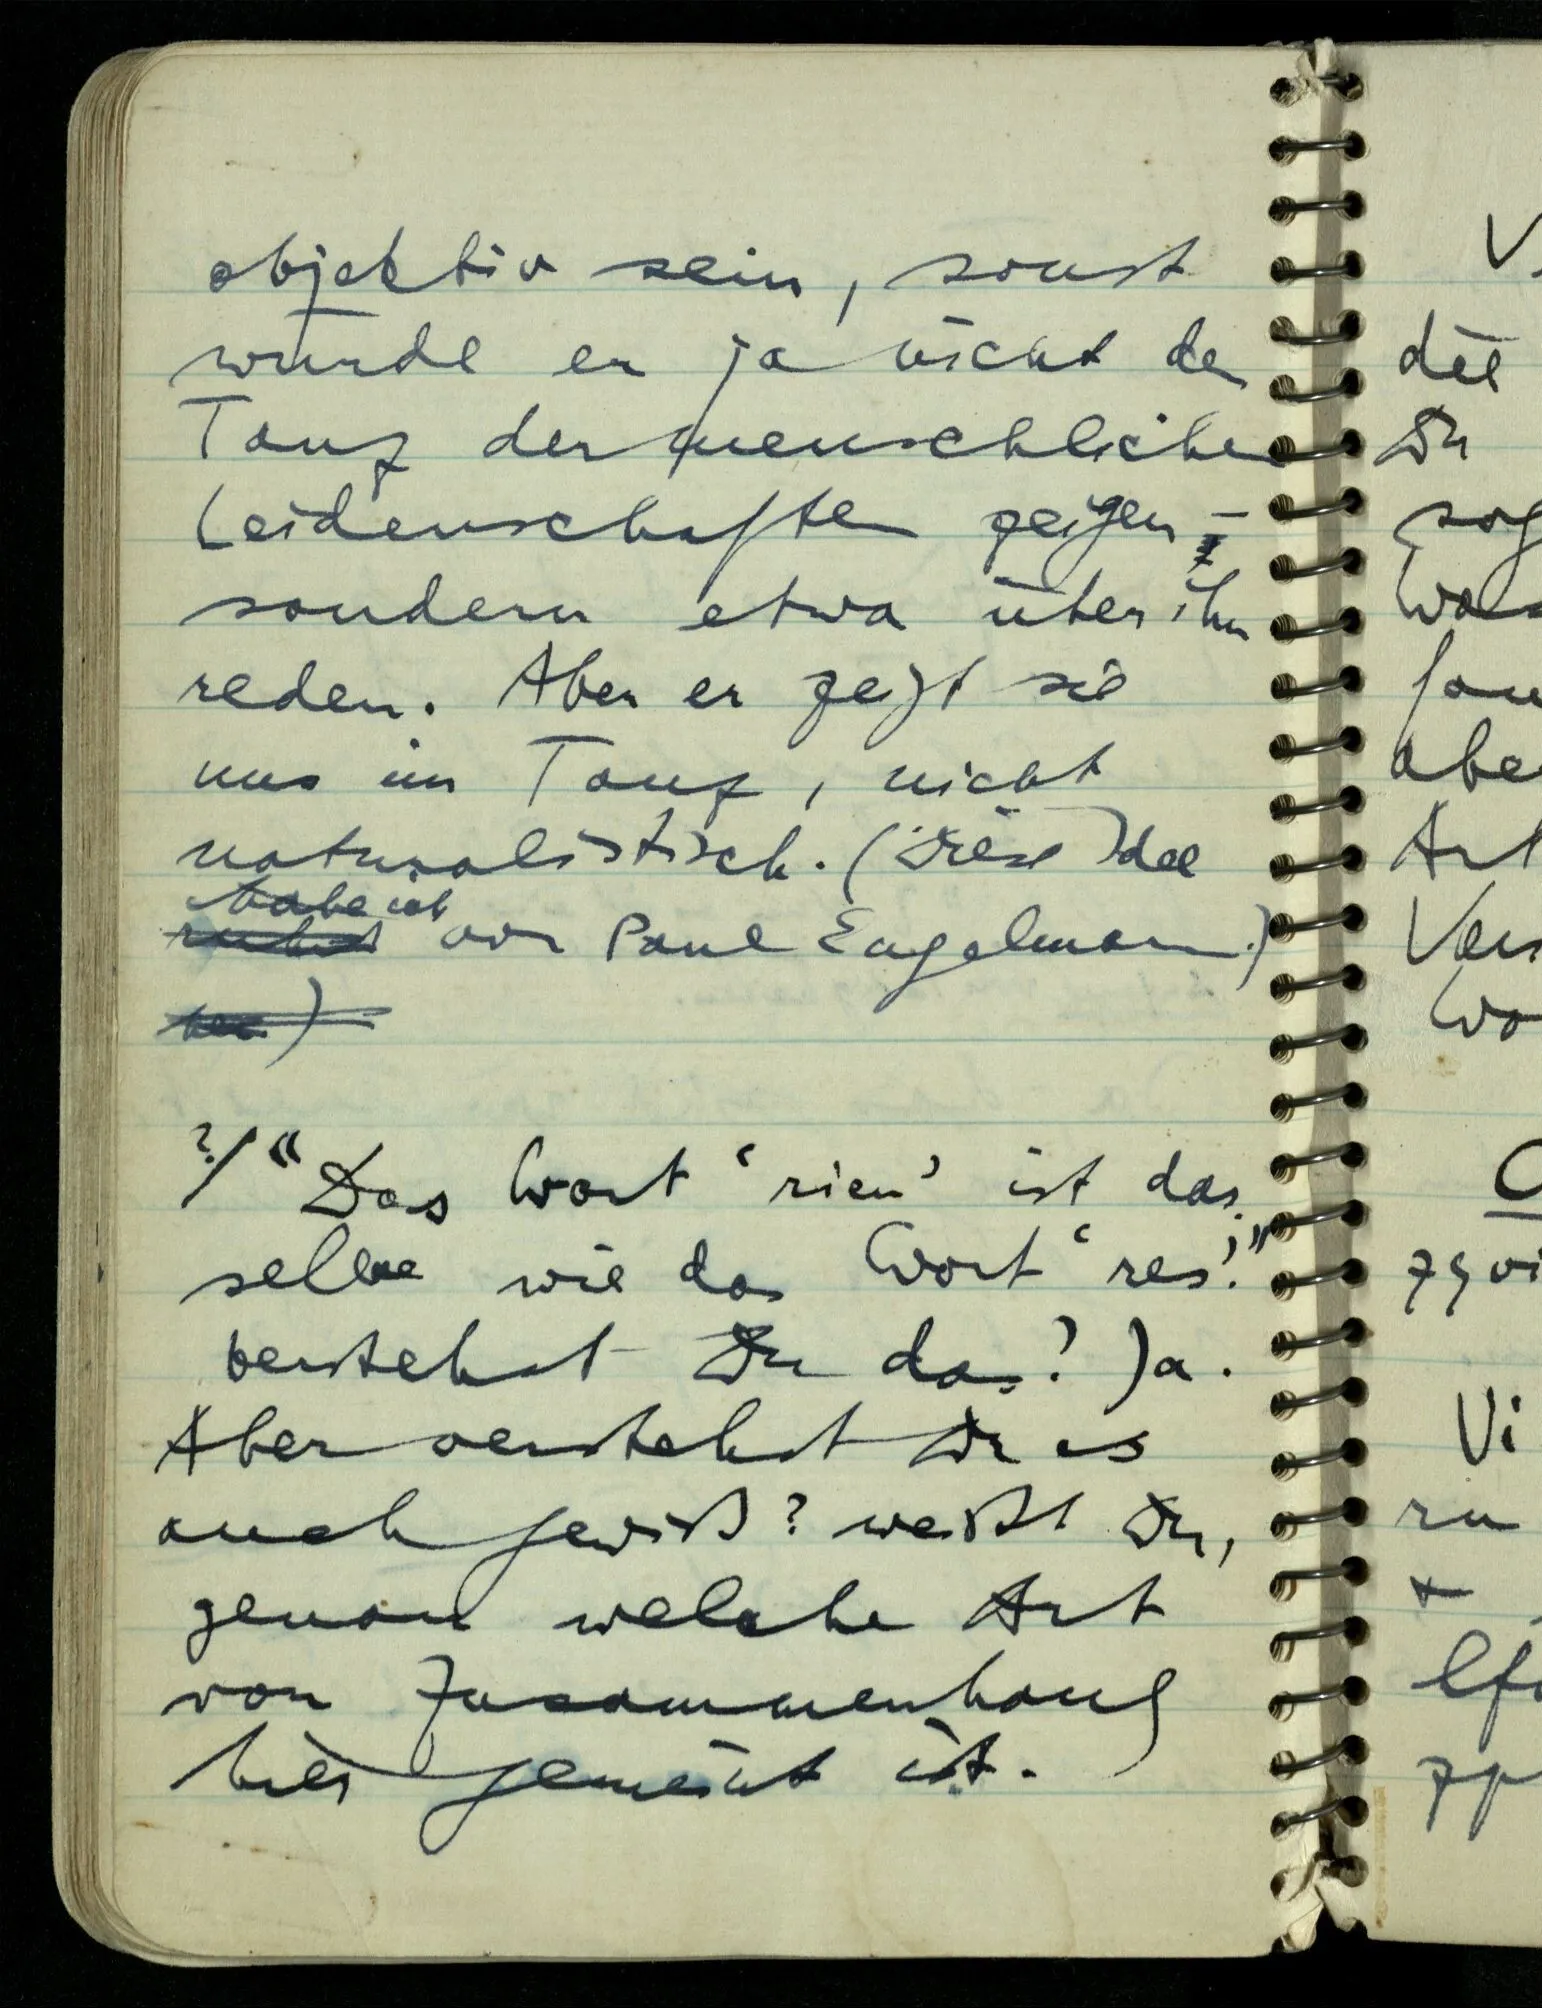 objektiv sein, sonst
würde er ja nicht den
Tanz der menschlichen
Leidenschaften zeigen –
sondern etwa über ihn
reden. Aber er zeigt sie
uns im Tanz, nicht
naturalistisch. (Diese Idee
habe ich
von Paul Engelmann.)
)
?/ “Das Wort ‘rien’ ist das-
selbe wie das Wort ‘res’.”
verstehst Du das? Ja.
Aber verstehst Du es
auch gewiß? weißt Du,
genau welche Art
von Zusammenhang
hier gemeint ist.
V
die
Du
sog
Was
aber
Art
Vers
Wo
Vi